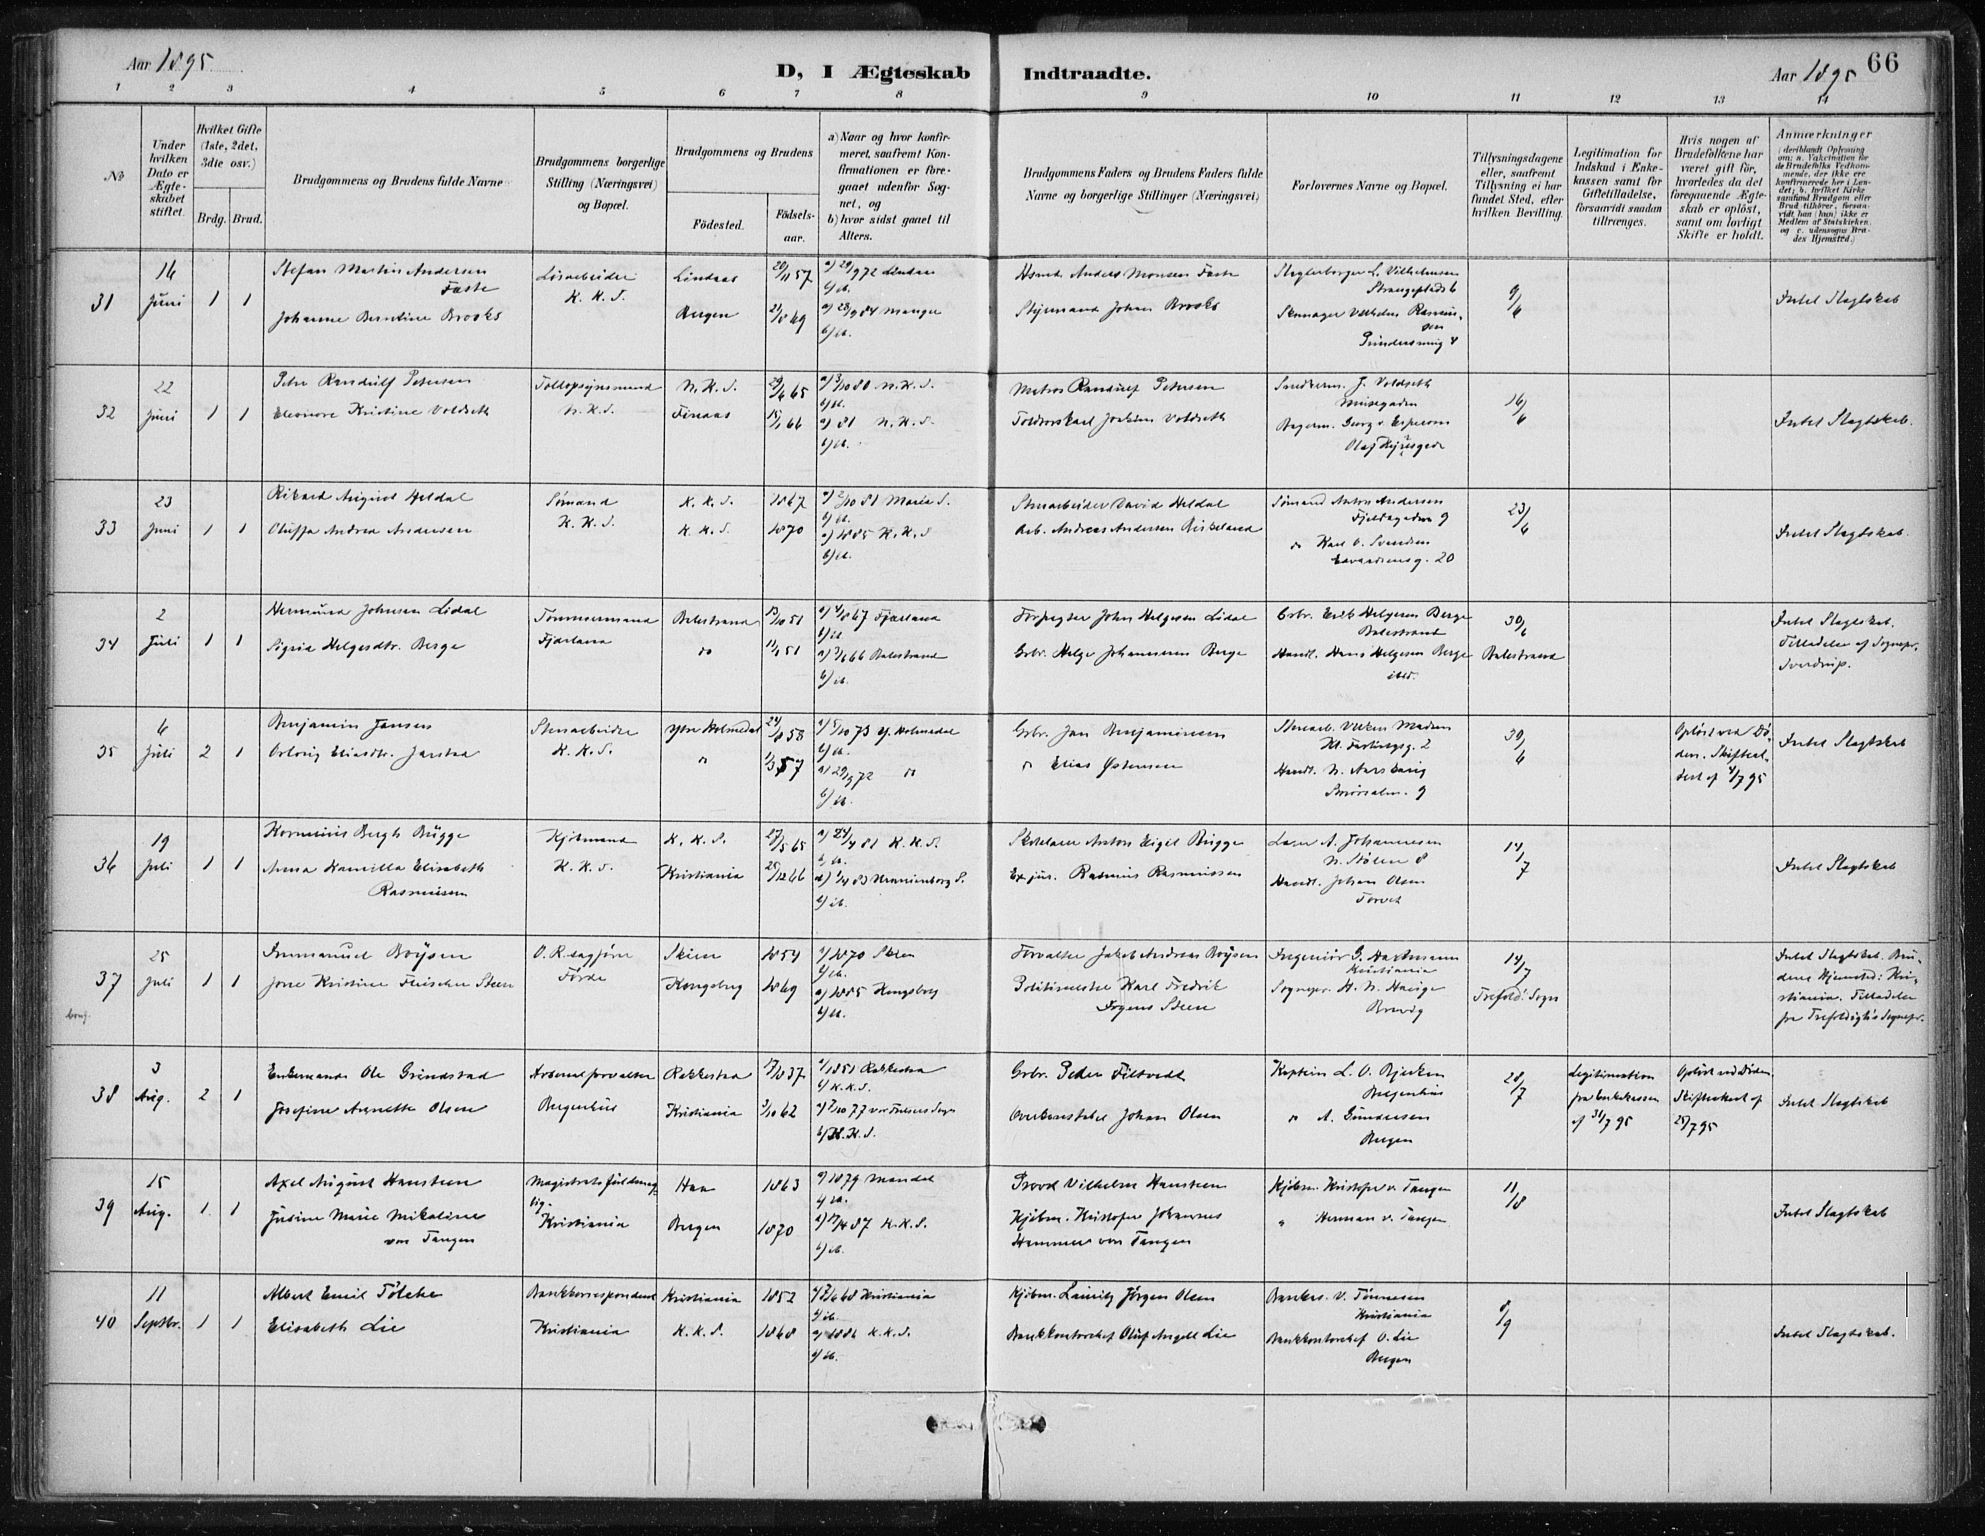 Aar 1895
D, I Ægteskab Indtraadte.
Aar 1895
66
1 2 3 4 5 6 7 8 9 10 11 12 13 14
No
Under hvilken Dato er Ægteskabet stiftet.
Hvilket Gifte (1ste, 2det, 3die osv.)
Brdg. Brud.
Brudgommens og Brudens fulde Navne
Brudgommens borgerlige Stilling (Næringsvei) og Bopæl.
Brudgommens og Brudens
Födested.
Födselsaar.
a) Naar og hvor konfirmeret, saafremt Konfirmationen er foregaaet udenfor Sognet, og
b) hvor sidst gaaet til Alters.
Brudgommens Faders og Brudens Faders fulde Navne og borgerlige Stillinger (Næringsvei)
Forlovernes Navne og Bopæl.
Tillysningsdagene eller, saafremt Tillysning ei har fundet Sted, efter hvilken Bevilling.
Legitimation for Indskud i Enkekassen samt for Giftetilladelse, forsaavidt saadan tiltrænges.
Hvis nogen af Brudefolkene har været gift för, hvorledes da det foregaaende Ægteskab er oplöst, samt om lovligt Skifte er holdt.
Anmærkninger
(deriblandt Oplysning om: a. Vakcination for de Brudefolks Vedkommende, der ikke ere konfirmerede her i Landet; b. hvilket Kirkesamfund Brudgom eller Brud tilhörer, forsaavidt han (hun) ikke er Medlem af Statskirken, og c. udensogns Brudes Hjemsted.)
31 16 Juni 1 1
Stefan Martin Andersen Faste
Johanne Berntine Brooks
Lösarbeider K. K. S.
Lindaas 20/11 57 a) 29/9 72 Lindaas b) ib.
Bergen 21/8 69 a) 28/9 84 Manger b) ib.
Husmd. Anders Monsen Faste
Styrmand Johan Brooks
Slagterborger L. Vilhelmsen Strangeplads 6
Skomager Vilhelm Rasmussen
9/6
Intet Slagtskab
32 22 Juni 1 1
Peter Randulf Petersen
Eleonore Kristine Voldseth
Toldopsynsmand N. K. S.
N. K. S. 29/6 65 a) 3/10 80 N. K. S. b) ib.
Findaas 15/1 66 a) 81 N. K. S. b) ib.
Matros Randulf Petersen
Toldrorskarl Joakim Voldseth
J. Voldseth
16/6
Intet Slagtskab.
33 23 Juni 1 1
Rikard August Heldal
Oluffa Andrea Andersen
Sömand K. K. S.
K. K. S. 1867 a) 2/10 81 Maria S. b) ib.
K. K. S. 1870 a) 1885 K. K. S b) ib.
Stenarbeider David Heldal
Arb. Andreas Andersen Birkeland
Sömand Anton Andersen Fjeldgaden 9
do Karl O. Svendsen Edvardsensg. 20
23/6
Intet Slagtskab.
34 2 Juli 1 1
Hermund Johnsen Lidal
Sigrid Helgesdtr. Berge
Tömmermand Fjærland
Balestrand 13/10 51 a) 4/8 67 Fjærland b) ib
do 11/1 51 a) 3/6 66 Balestrand b) ib.
Forpagter John Helgesen Lidal
Grbr. Helge Johannesen Berge
Grbr. Erik Helgesen Berge Balestrand
Handl. Hans Helgesen Berge ibid.
30/6 Balestrand
Intet Slagtskab. Tilladelse af Sognepr. Sverdrup.
35 6 Juli 2 1
Benjamin Jansen
Eliasdtr. Jarstad
Stenarbeider K. K. S.
Ytre Holmedal 24/8 58 a) 5/10 73 Y. Holmedal b) ib.
do 1/3 57 a) 29/9 72 do b) ib.
Grbr. Jan Benjaminsen
do Elias Östensen
Stenarb. Madsen
30/6
Oplöst ved Döden. Skifteattest af 4/7 95
Intet Slagtskab
36 19 Juli 1 1
Kornelius Bergh Bügge
Anna Kamilla Elisabeth Rasmussen
Kjöbmand K. K. S.
K. K. S. 27/5 65 a) 24/4 81 K. K. S. b) ib.
Kristiania 28/12 66 a) 1/4 83 Uranienborg S. b) ib.
Skolelærer Anton Eigil Bügge
Ex. jur. Rasmus Rasmussen
A. Johannesen N. Stölen 8
Handl. Johan Olsen Torvet
14/7
Intet Slagtskab
37 25 Juli 1 1
Immanuel Böysen
Kristine Fleischer Steen
O. R. sagförer Förde
Skien 1854 a) 1870 Skien b) ib.
Kongsberg 1869 a) 1885 Kongsberg b) ib.
Forvalter Jakob Andreas Böysen
Politimester Karl Fredrik Steen
Ingeniör G. Hartmann Kristiania
Sognepr. H. N. Hauge Brevig
14/7 Trefold. Sogn
Intet Slagtskab. Brudens Hjemsted: Kristiania. Tilladelse fra Trefoldigh's Sognepr.
38 3 Aug. 2 1
Enkemand Ole Grindstad
Josefine Annette Olsen
Arsenalforvalter Bergenhus
Rakkestad 17/8 37 a) 1851 Rakkestad b) K. K. S.
Kristiania 3/10 62 a) 7/10 77 vor Frelsers Sogn b) K. K. S.
Grbr. Peder Filtvedt
Overkonstabel Johan Olsen
Kaptein L. O. Bjerken Bergenhus
do A. Gundersen Bergen
28/7
Legitimation fra Enkekassen af 31/7 95
Oplöst ved Döden. Skifteattest af 29/7 95
Intet Slagtskab
39 15 Aug. 1 1
Axel August Hansteen
Marie Nikoline von Tangen
Magistratsfuldmægtig. Kristiania
Haa 1863 a) 1879 Mandal b) ib.
Bergen 1870 a) 17/4 87 K. K. S. b) ib.
Provst Vilhelm Hansteen
Kjöbm. Kristofer Johannes Hammer von Tangen
Kjöbm. Kristofer v. Tangen
" Herman v. Tangen
11/8
Intet Slagtskab
40 11 Septbr. 1 1
Albert Emil
Elisabeth Lie
Bankkorrespondent Kristiania
Kristiania 1852 Kristiania b) ib.
K. K. S. 1868 a) 1884 K. K. S. b) ib.
Kjöbm. Lauritz Jörgen Olsen
Bankkontorchef Oluf Angell Lie
Bankas. V. Tönnesen Kristiania
Bankkontorchef O. Lie Bergen
8/9
Intet Slagtskab.